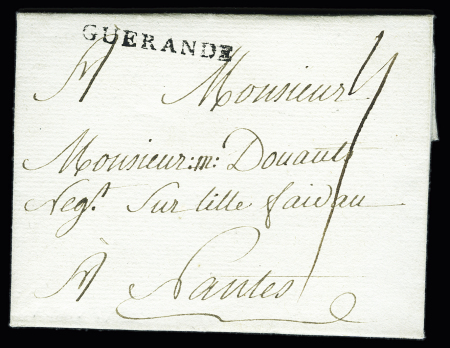 GUERANDE
A Monsieur
Monsieur: m: Douault
Negt. Sur lille faidau
A Nantes